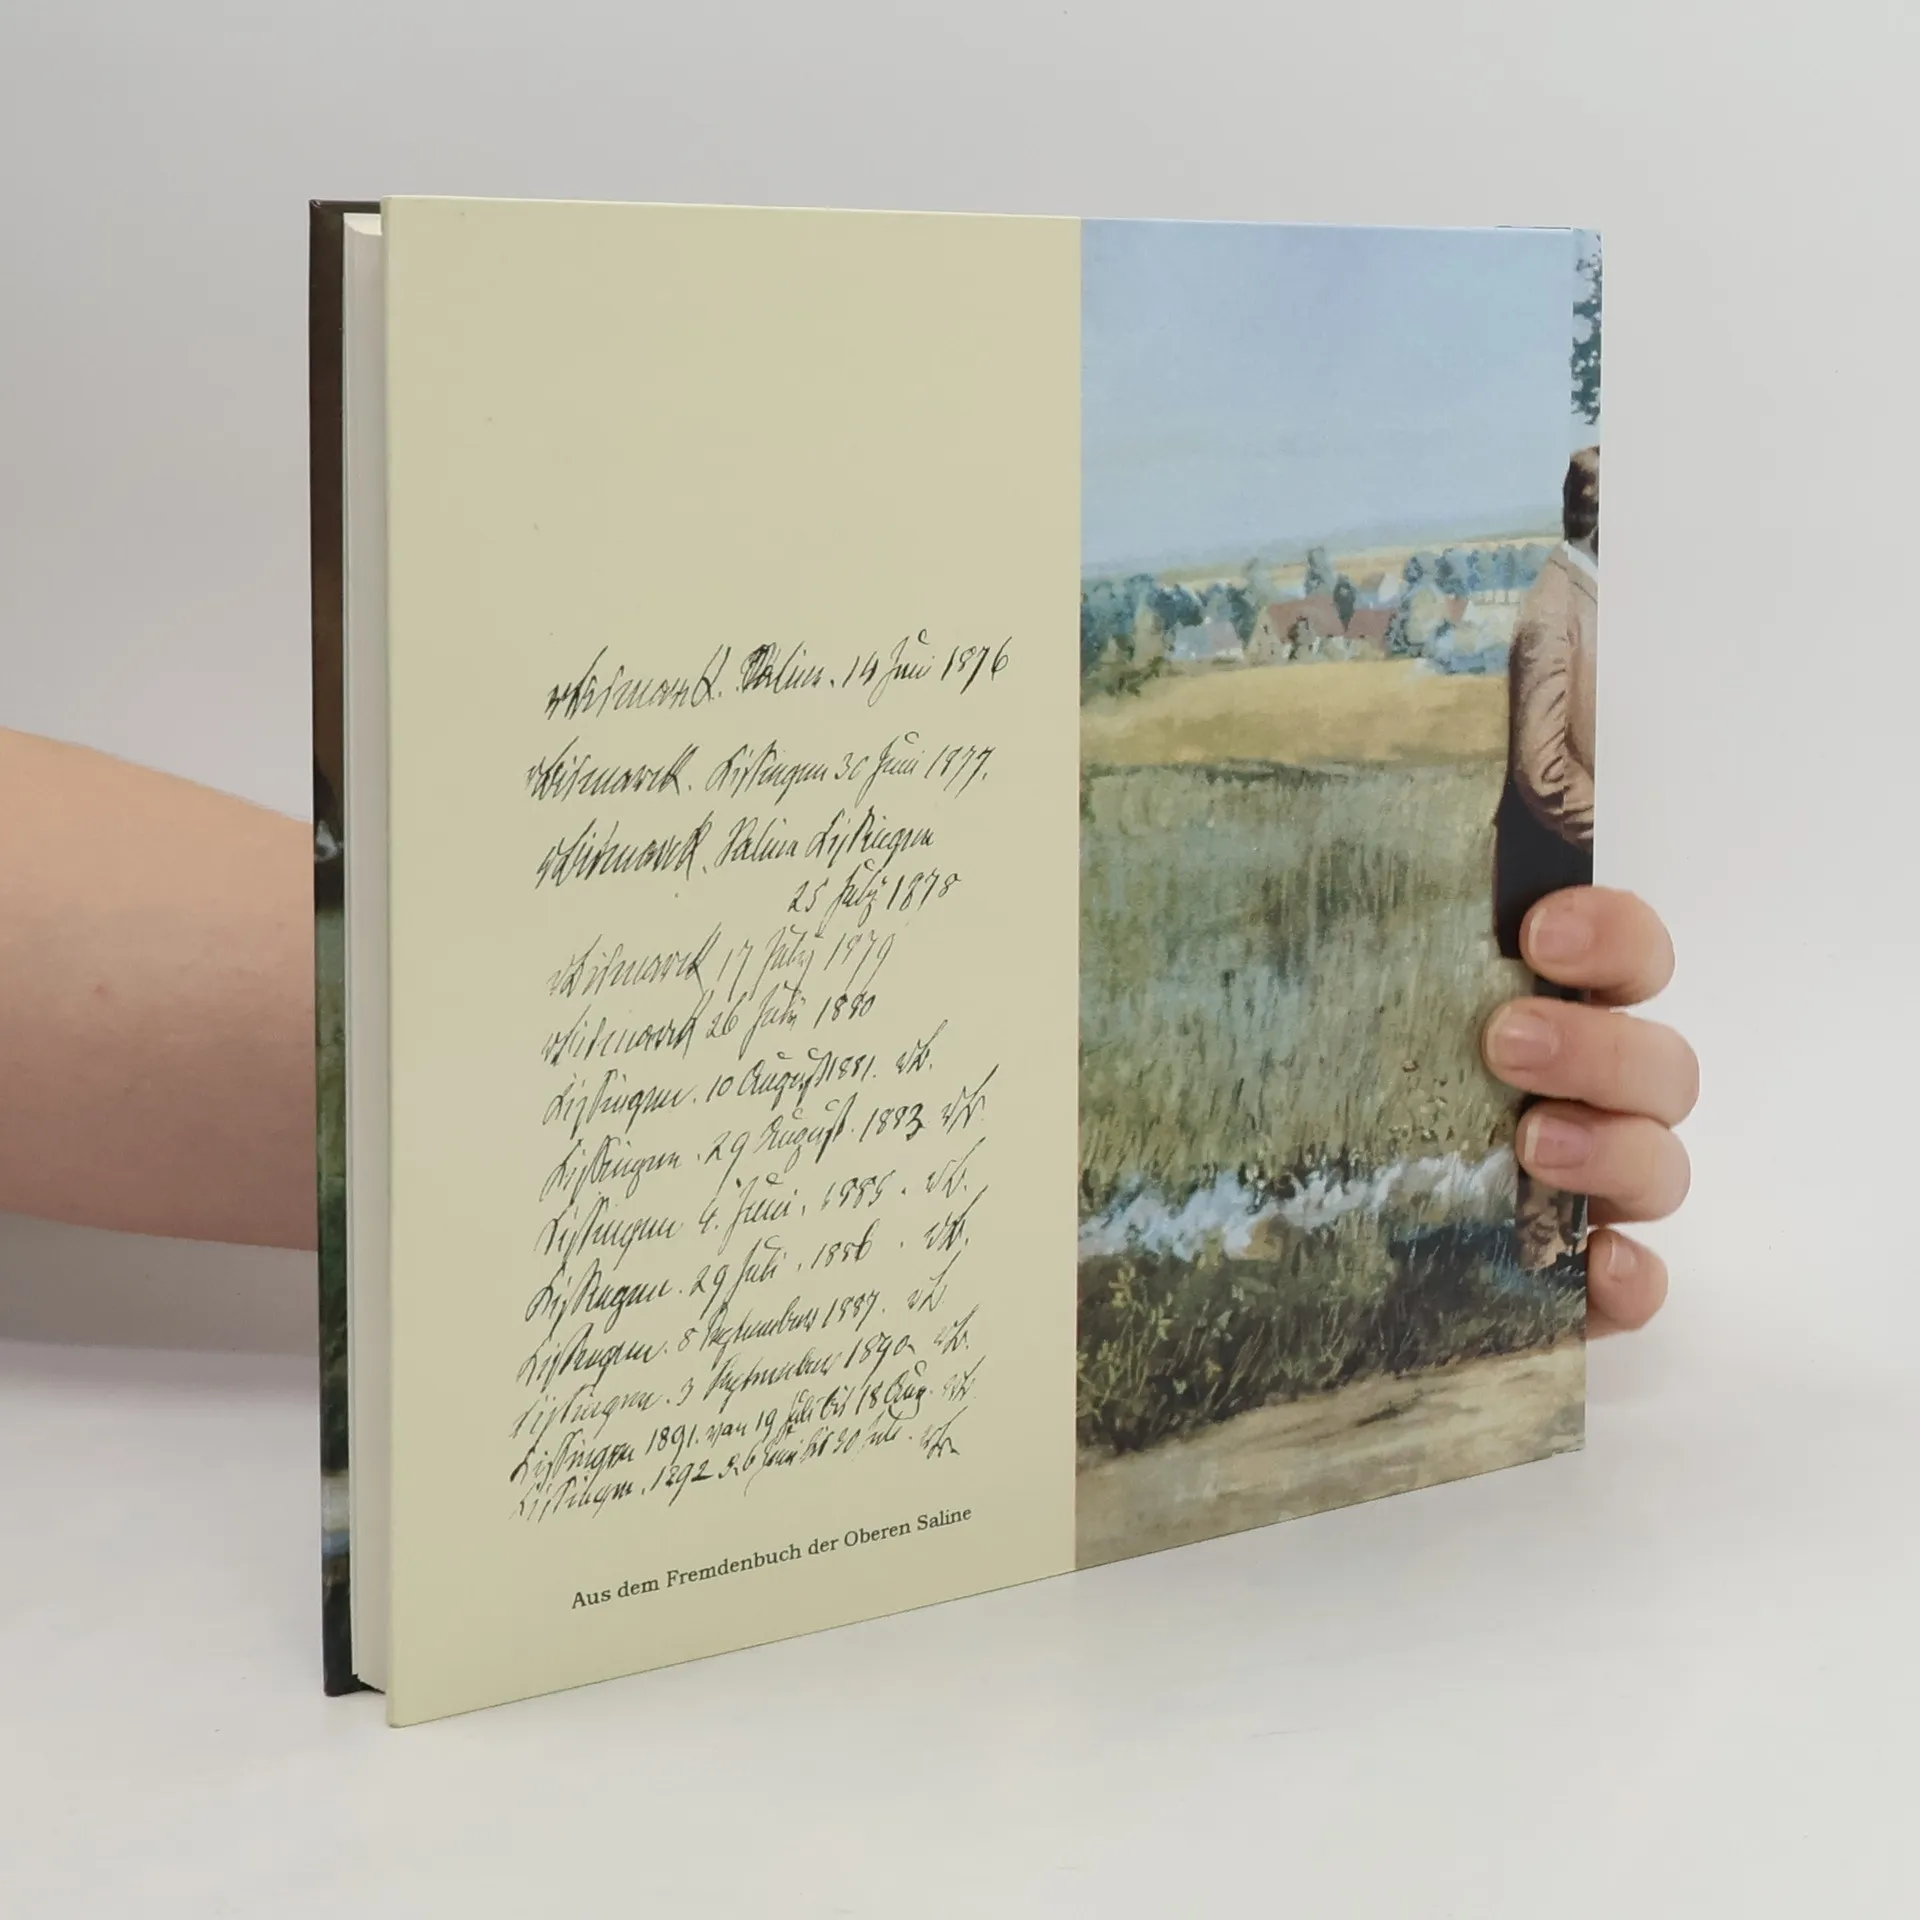 vBismarck. Saline. 14 Juni 1876
vBismarck. Kissingen 30 Juni 1877.
vBismarck. Saline Kissingen
25 July 1878
vBismarck 17 July 1879
vBismarck 26 July 1880
Kissingen. 10 August 1881. vB.
Kissingen. 29 August. 1883 vB.
Kissingen 4. Juni. 1885. vB.
Kissingen. 29 Juli. 1886. vB.
Kissingen. 8 September 1887. vB.
Kissingen. 3 September 1890. vB.
Kissingen 1891. von 19 Juli bis 18 Aug. vB
Kissingen. 1892 bis 30 Juli. vB
Aus dem Fremdenbuch der Oberen Saline